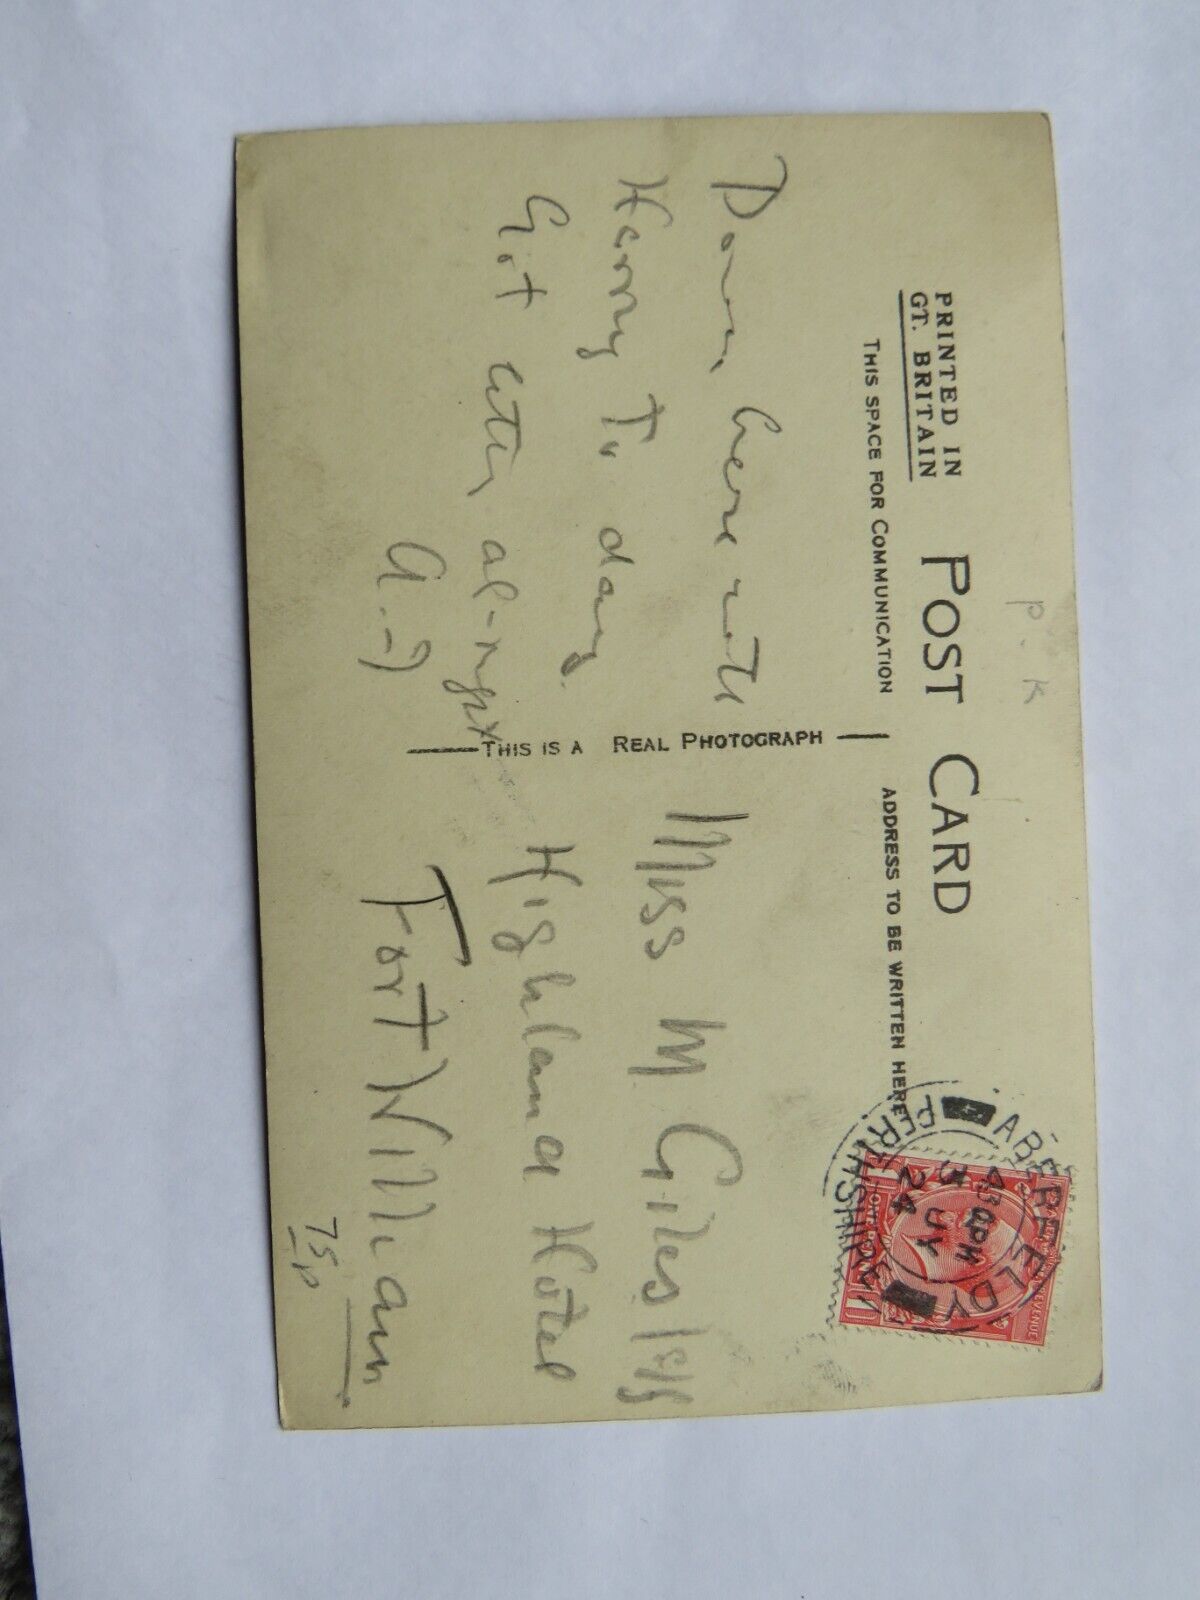 P. K
POST CARD
PRINTED IN
GT. BRITAIN
THIS SPACE FOR COMMUNICATION
ADDRESS TO BE WRITTEN HERE
Down here with
Harry To day.
Got letter al-right
A.
THIS IS A REAL PHOTOGRAPH
Miss M Giles
Highland Hotel
Fort William
75p
ABERFELDY
PERTHSHIRE
JY
24
REVENUE